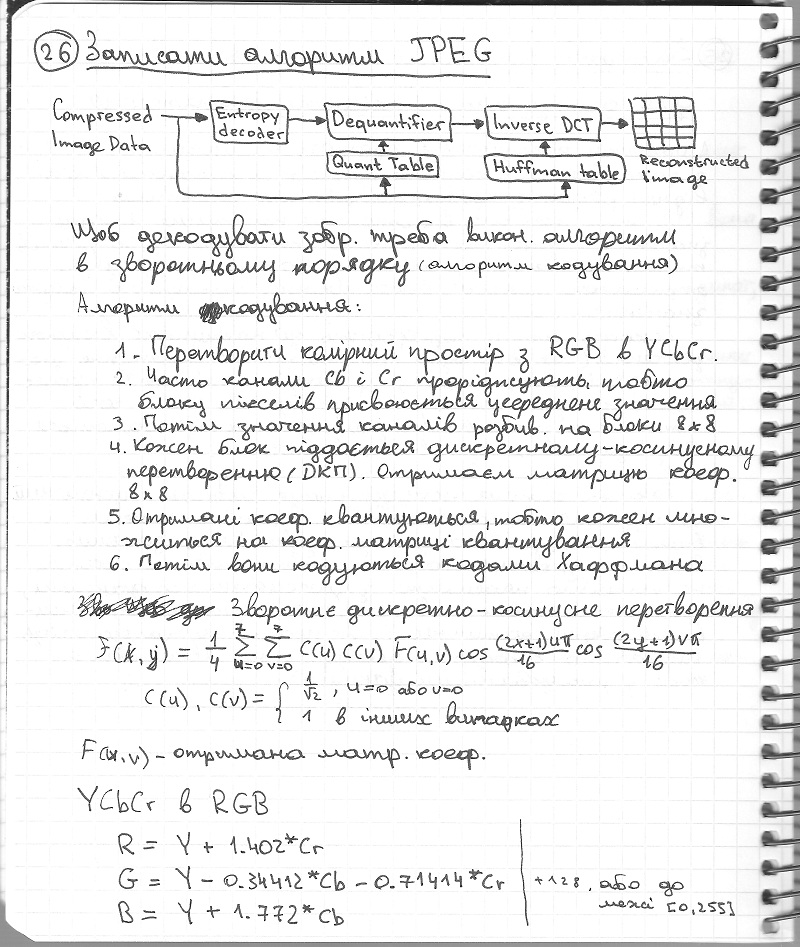 26 Записати алгоритм JPEG
Compressed Image Data
Entropy decoder
Dequantifier
Inverse DCT
Quant Table
Huffman table
Reconstructed image
Щоб декодувати зобр. треба викон. алгоритм
в зворотньому порядку (алгоритм кодування)
Алгоритм кодування:
1. Перетворити колірний простір з RGB в YCbCr.
2. Часто канали Cb і Cr проріджують, тобто
блоку пікселів присвоюється усереднене значення
3. Потім значення каналів розбив. на блоки 8x8
4. Кожен блок піддається дискретному-косинусному
перетворенню (ДКП). Отримаєм матрицю коеф.
8x8
5. Отримані коеф. квантуються, тобто кожен мно-
житься на коеф. матриці квантування
6. Потім вони кодуються кодами Хаффмана
Зворотнє дискретно-косинусне перетворення
f(x,y) = 1/4 Σ(u=0..7) Σ(v=0..7) C(u) C(v) F(u,v) cos (2x+1)uπ/16 cos (2y+1)vπ/16
C(u), C(v) = { 1/√2, u=0 або v=0
1 в інших випадках
F(u,v) - отримана матр. коеф.
YCbCr в RGB
R = Y + 1.402*Cr
G = Y - 0.34412*Cb - 0.71414*Cr
B = Y + 1.772*Cb
+128, або до
межі [0,255]